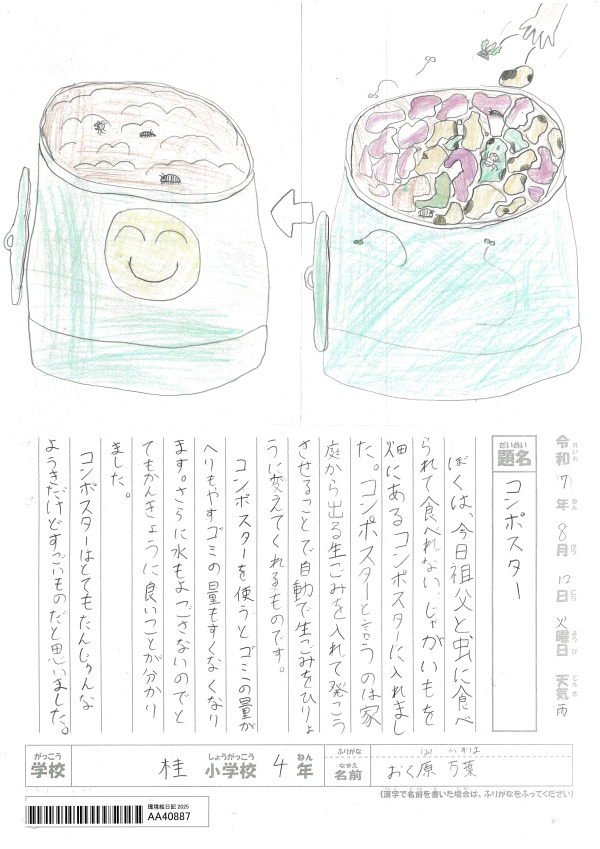 令和 7 年 8 月 12 日 火曜日 天気 雨
れいわ ねん がつ にち ようび てんき
だいめい
題名 コンポスター
ぼくは、今日祖父と虫に食べ
られて食べれない、じゃがいもを
畑にあるコンポスターに入れまし
た。コンポスターと言うのは家
庭から出る生ごみを入れて発こう
させることで自動で生ごみをひりょ
うに変えてくれるものです。
コンポスターを使うとゴミの量が
へりもやすゴミの量もすくなくなり
ます。さらに水もよごさないのでと
てもかんきょうに良いことが分かり
ました。
コンポスターはとてもたんじゅんな
ようきだけどすごいものだと思いました。
がっこう しょうがっこう ねん
学校 桂 小学校 4 年
ふりがな
なまえ
名前 おく原 万葉
(漢字で名前を書いた場合は、ふりがなをふってください)
環境絵日記 2025
AA40887